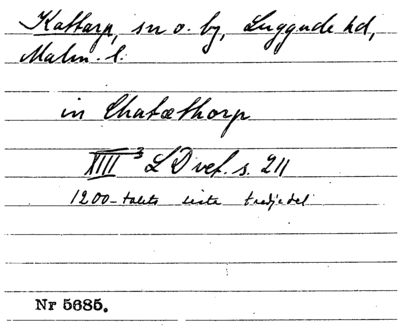 Kattarp, sn o. by, Luggude hd,
Malm. l.
in Chatæthorp
XIII 3 LDvet. s. 211
1200-talets sista tredjedel
Nr 5685.